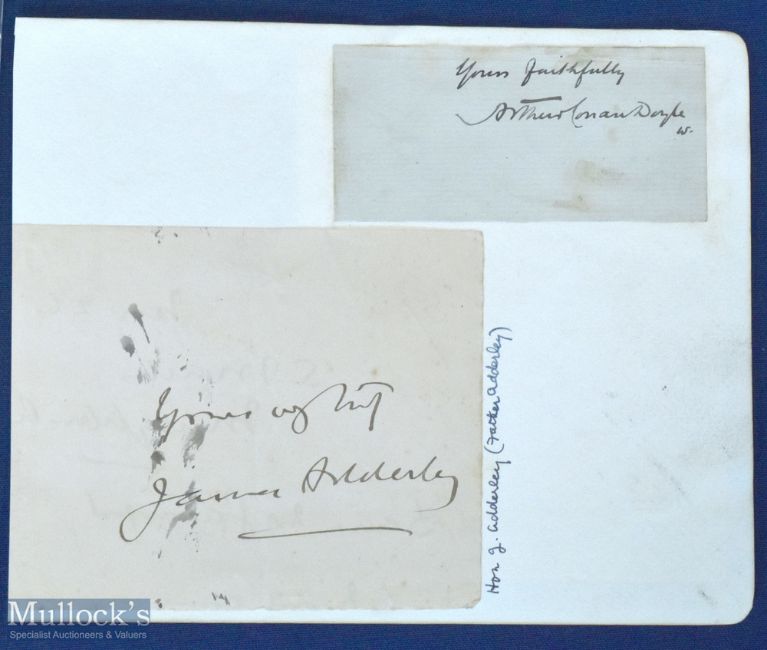 Yours faithfully
Arthur Conan Doyle
Yours
James Adderley
Hon J. Adderley (Father Adderley)
MULLOCK'S
Specialist Auctioneers & Valuers